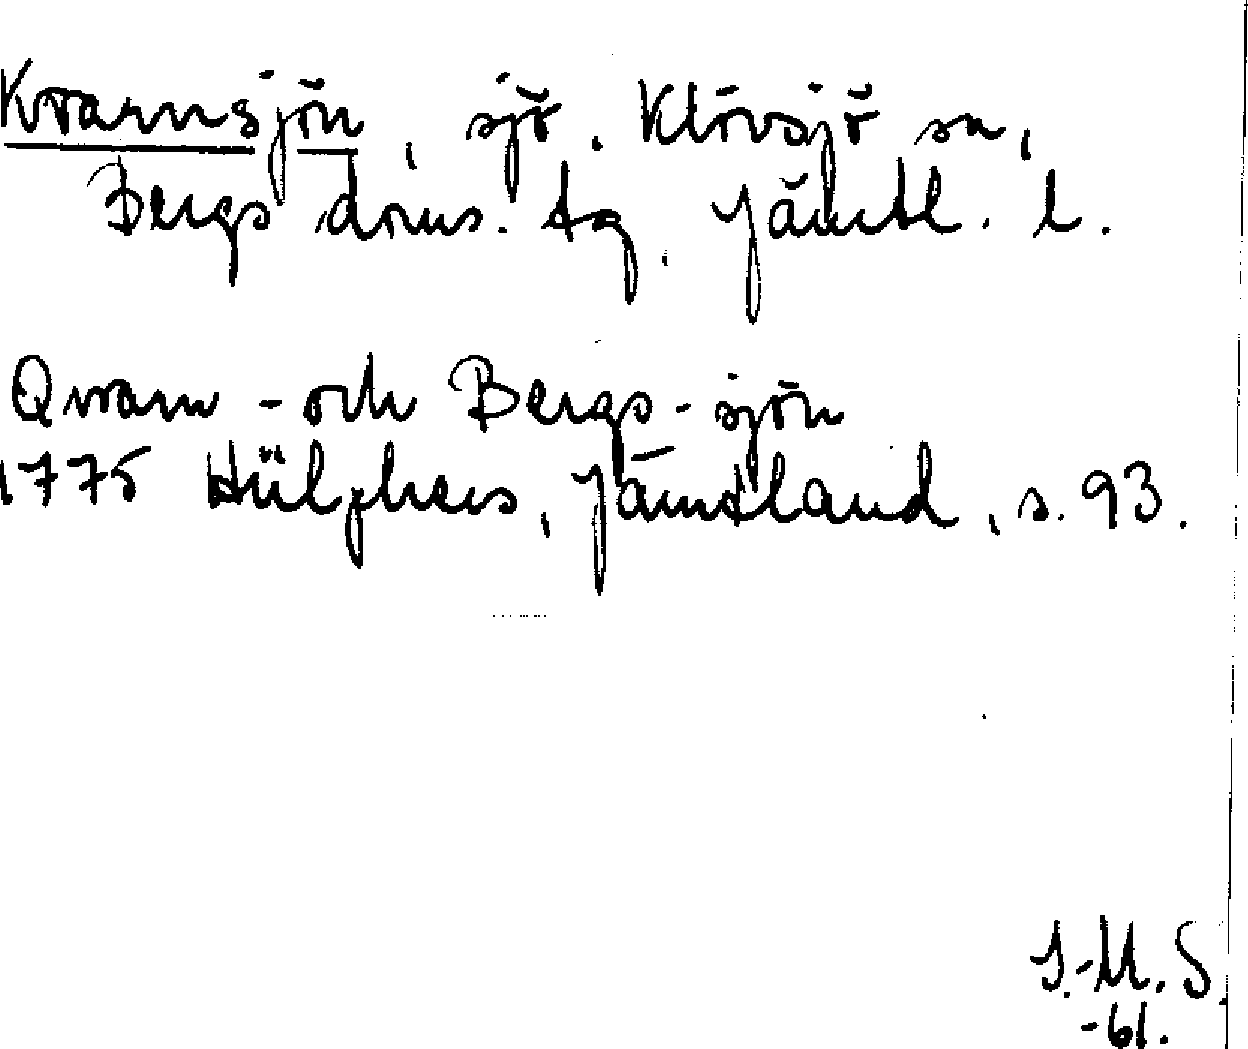 Kvarnsjön, sjö. Klövsjö sn,
Bergs doms. tg. Jämtl. l.
Qvarn- och Bergs-sjön
1775 Hülphers, Jämtland, s. 93.
I.-M. S.
-61.